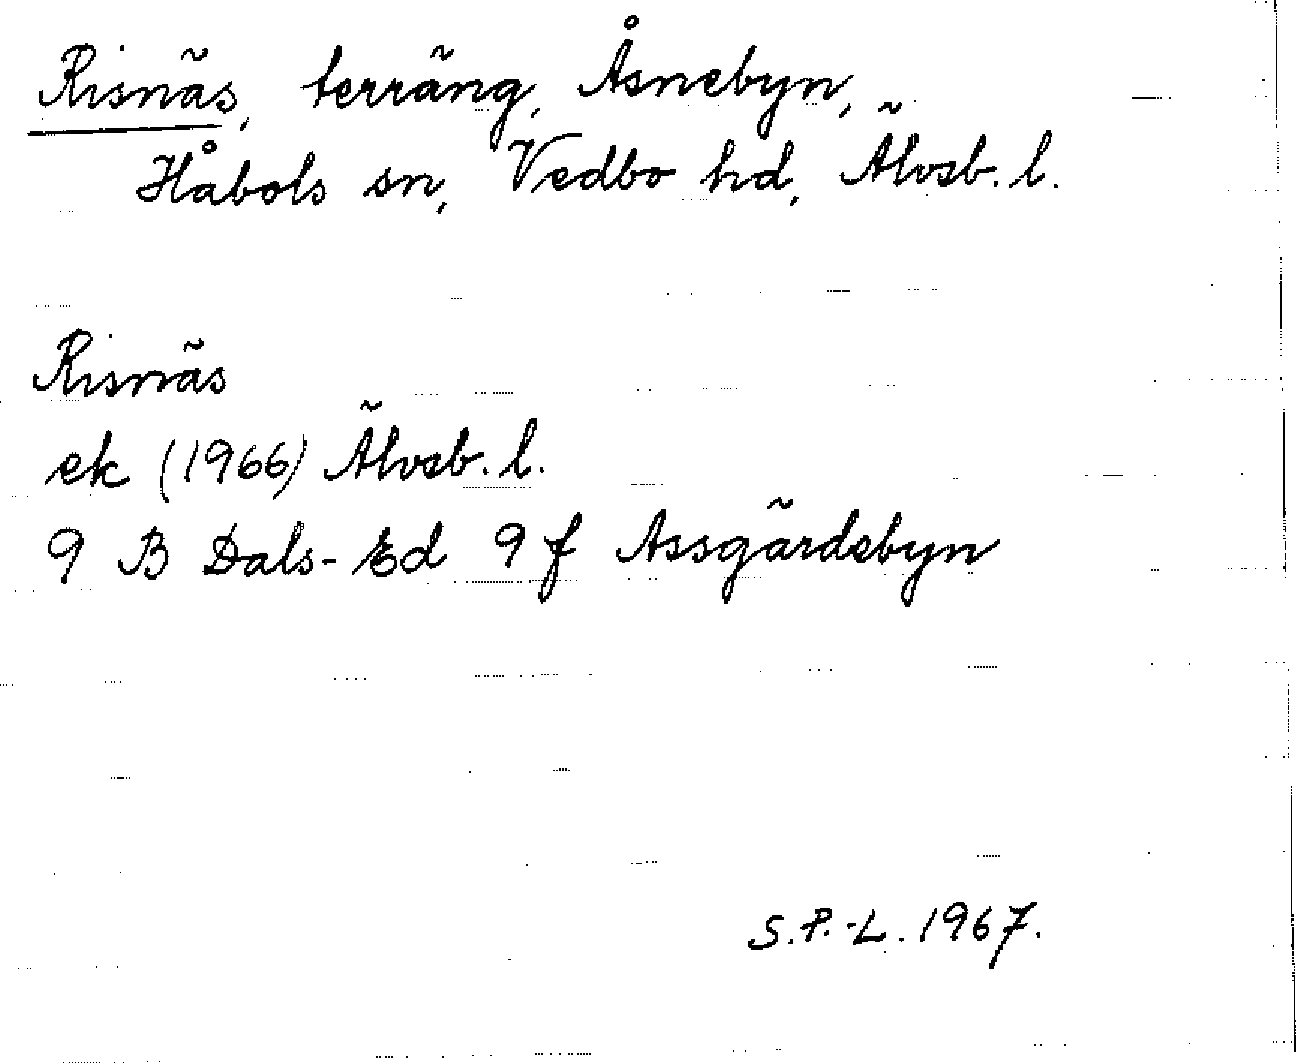 Risnäs, terräng, Åsnebyn,
Håbols sn, Vedbo hd, Älvsb. l.
Risnäs
ek (1966) Älvsb. l.
9 B Dals-Ed 9 f Assgärdebyn
S.P.-L. 1967.